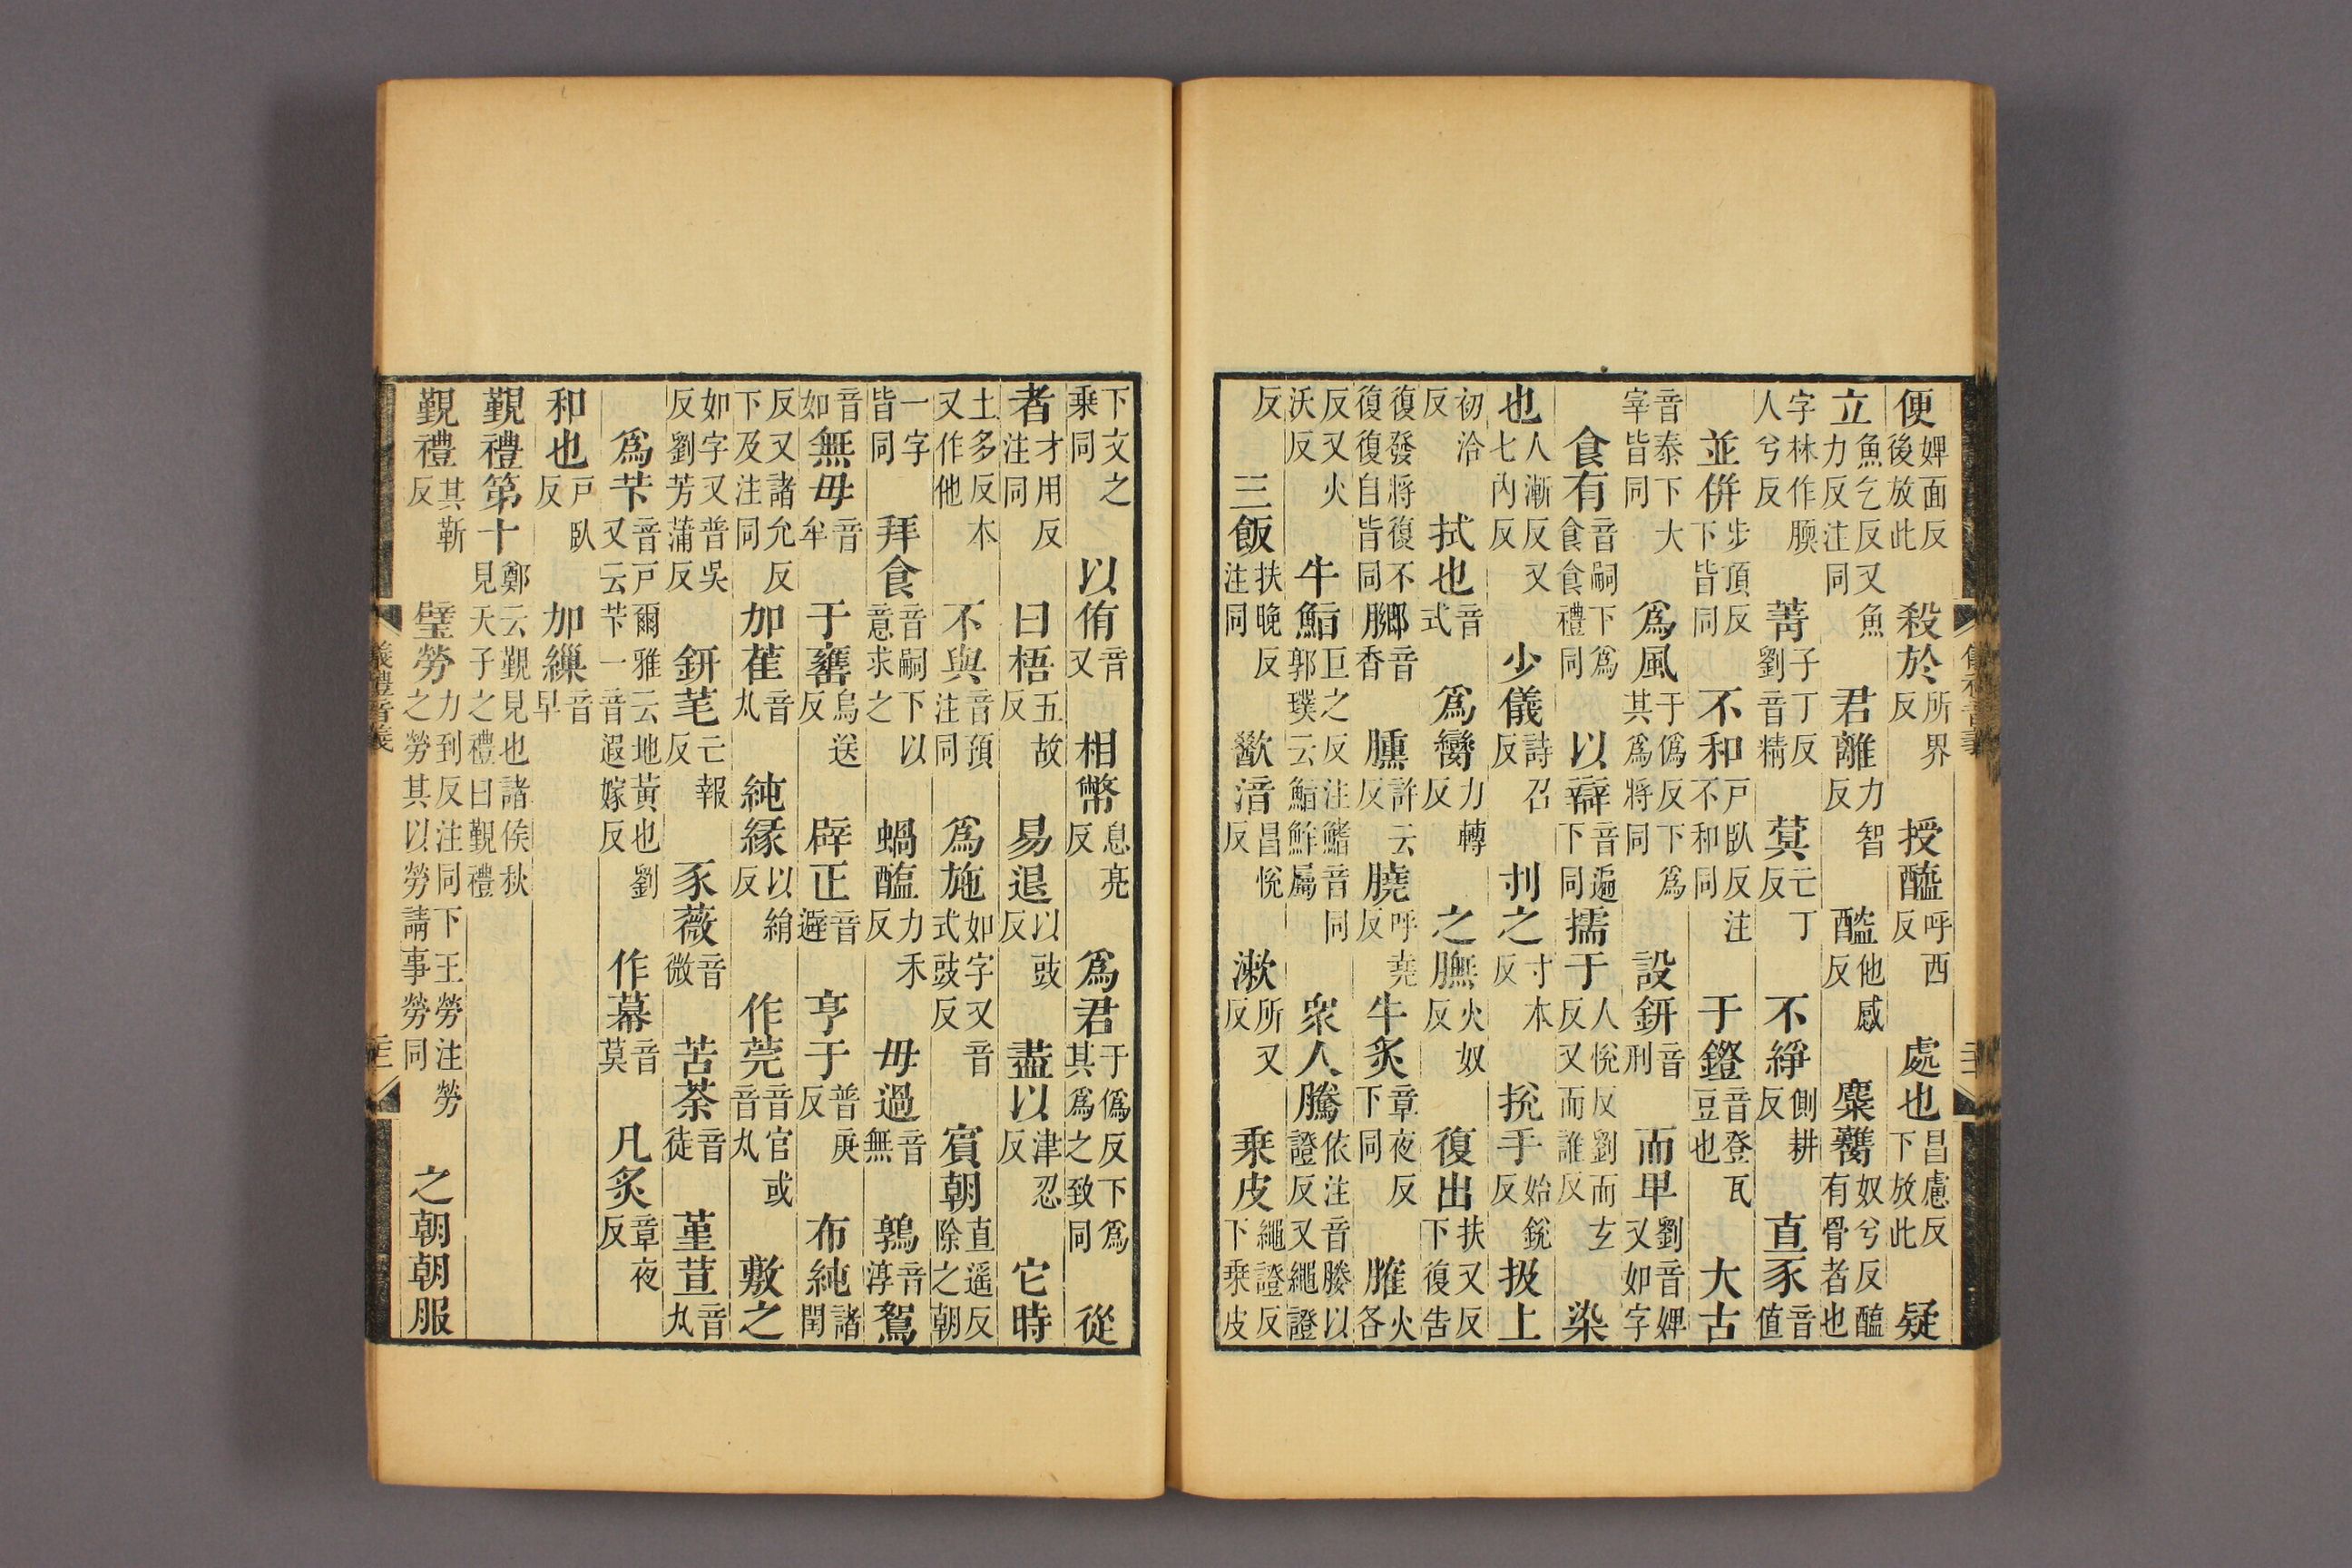 儀禮音義
便婢面反後放此殺於所界反授醯呼西反處也昌慮反下放此疑
立魚乞反又魚力反注同君離力智反醓他感反麋臡奴兮反醢有骨者也
字林作腝人兮反菁子丁反劉音精蓂亡丁反不綪側耕反直豕音值
並併步頂反下皆同不和戶臥反注不和同于鐙音登瓦豆也大古
音泰下大宰皆同爲風于僞反下爲其爲將同設鉶音刑而卑劉音婢又如字
食有音嗣下爲食食禮同以辯音遍下同擩于人悅反劉而玄反又而誰反染
也人漸反又七內反少儀詩召反刌之寸本反挩手始銳反扱上
初洽反拭也音式爲臠力轉反之膴火奴反復出扶又反下復告
復發將復不復復自皆同膷音香臐許云反膮呼堯反牛炙章夜反下同臛火各
反又火沃反牛鮨巨之反注鰭音同郭璞云鮨鮓屬衆人騰依注音媵以證反又繩證
反三飯扶晚反注同歠湆昌悅反漱所又反乘皮繩證反下乘皮
下文之乘同以侑音又相幣息亮反爲君于僞反下爲其爲之致同從
者才用反注同曰梧五故反易退以豉反盡以津忍反它時
土多反本又作他不與音預注同爲施如字又音式豉反賓朝直遙反除之朝
一字皆同拜食音嗣下以意求之蝸醢力禾反毋過音無鶉音淳鴽
音如無毋音牟于甕烏送反辟正音避亨于普庚反布純諸閏
反又諸允反下及注同加萑音丸純緣以絹反作莞音官或音丸敷之
如字又普吳反劉芳蒲反鉶芼亡報反豕薇音微苦荼音徒堇荁音丸
爲芐音戶爾雅云地黃也劉又云芐一音遐嫁反作幕音莫凡炙章夜反
和也戶臥反加繅音早
覲禮第十鄭云覲見也諸侯秋見天子之禮曰覲禮
覲禮其靳反璧勞力到反注同下王勞注勞之勞其以勞請事勞同之朝朝服
儀禮音義